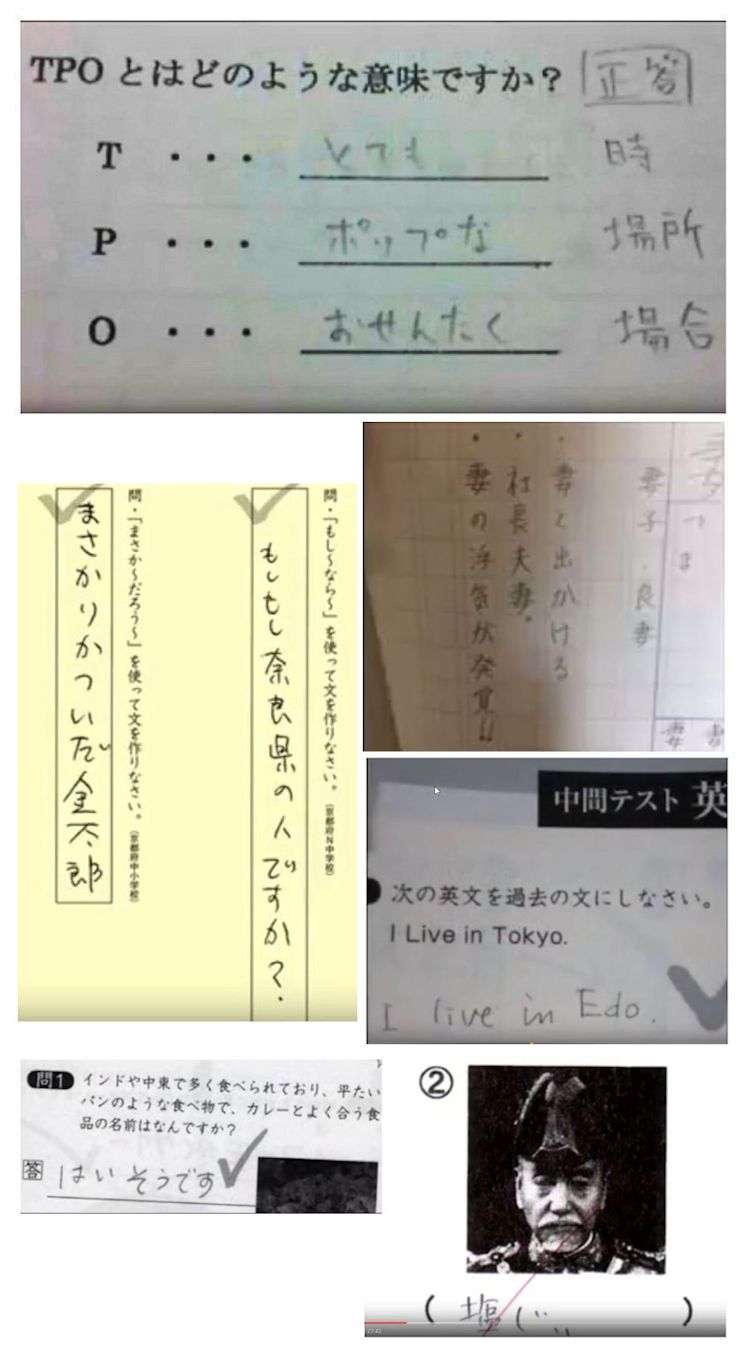 TPOとはどのような意味ですか? 正答
T ・・・ とても 時
P ・・・ ポップな 場所
O ・・・ おせんたく 場合
問・「もし〜なら〜」を使って文を作りなさい。(京都府N中学校)
もしもし奈良県の人ですか?.
問・「まさか〜だろう〜」を使って文を作りなさい。(京都府中小学校)
まさかりかついだ金太郎
つま
妻 妻
妻子・良妻
・妻と出かける
・社長夫妻。
・妻の浮気が発覚!!
中間テスト 英
次の英文を過去の文にしなさい。
I Live in Tokyo.
I live in Edo.
問1 インドや中東で多く食べられており、平たい
パンのような食べ物で、カレーとよく合う食
品の名前はなんですか?
答 はいそうです
②
( 塩 )
27:42